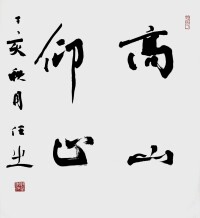 高山
仰止
丁亥秋月任